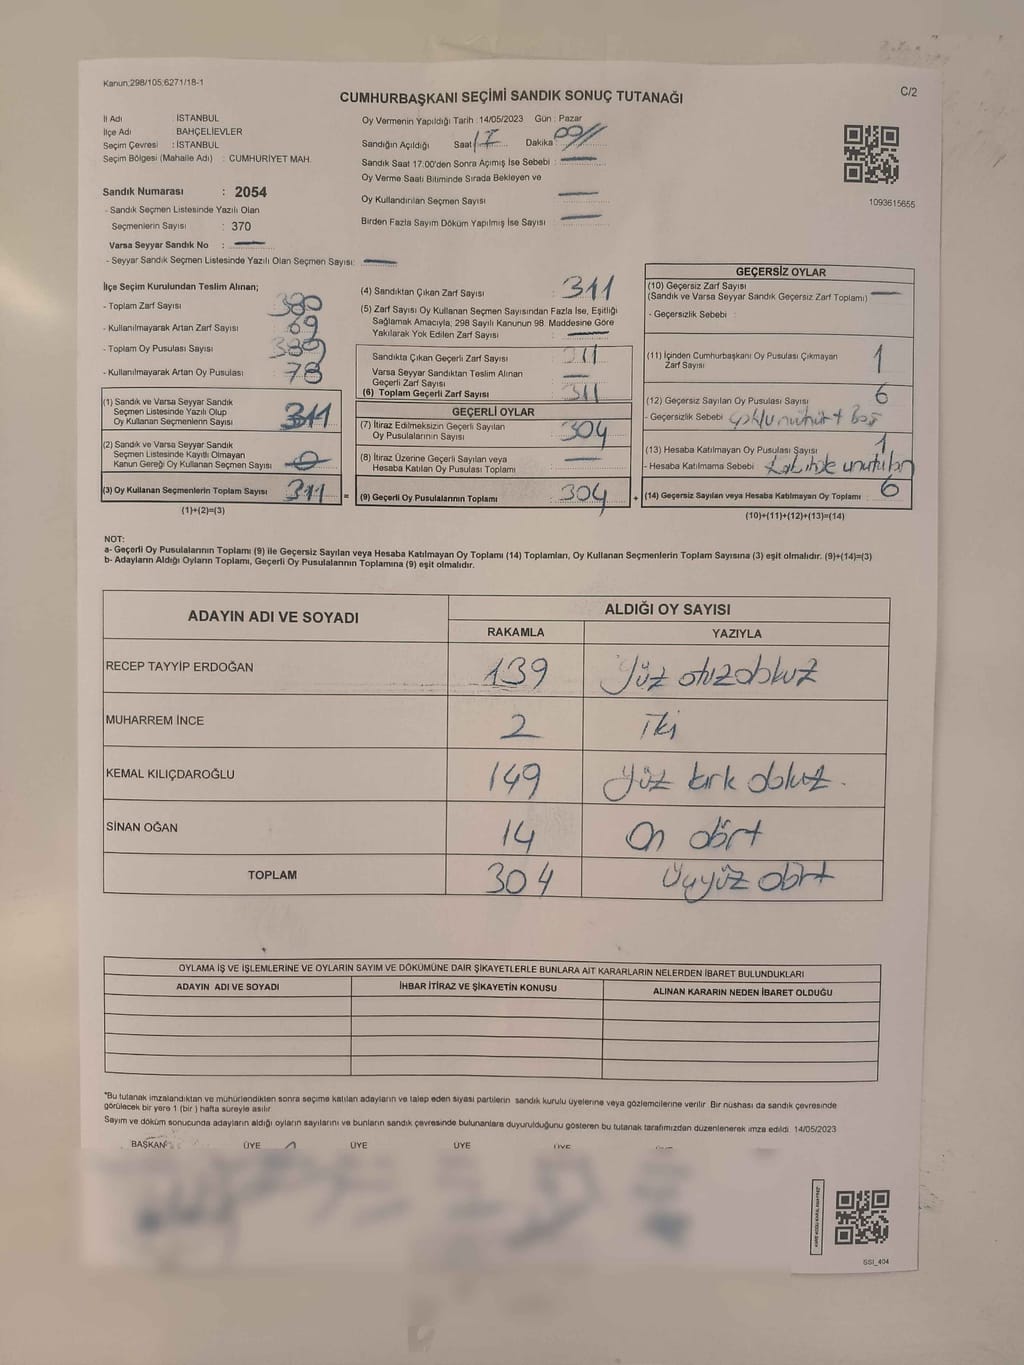 Kanun;298/105;6271/18-1
C/2
CUMHURBAŞKANI SEÇİMİ SANDIK SONUÇ TUTANAĞI
İl Adı : İSTANBUL
İlçe Adı : BAHÇELİEVLER
Seçim Çevresi : İSTANBUL
Seçim Bölgesi (Mahalle Adı) : CUMHURİYET MAH.
Sandık Numarası : 2054
- Sandık Seçmen Listesinde Yazılı Olan
Seçmenlerin Sayısı : 370
Varsa Seyyar Sandık No :
- Seyyar Sandık Seçmen Listesinde Yazılı Olan Seçmen Sayısı:
Oy Vermenin Yapıldığı Tarih : 14/05/2023 Gün : Pazar
Sandığın Açıldığı Saat 17 Dakika 00
Sandık Saat 17:00'den Sonra Açımış İse Sebebi :
Oy Verme Saati Bitiminde Sırada Bekleyen ve
Oy Kullandırılan Seçmen Sayısı
Birden Fazla Sayım Döküm Yapılmış İse Sayısı :
1093615655
İlçe Seçim Kurulundan Teslim Alınan;
- Toplam Zarf Sayısı : 380
- Kullanılmayarak Artan Zarf Sayısı : 69
- Toplam Oy Pusulası Sayısı :
- Kullanılmayarak Artan Oy Pusulası : 78
(1) Sandık ve Varsa Seyyar Sandık
Seçmen Listesinde Yazılı Olup
Oy Kullanan Seçmenlerin Sayısı : 311
(2) Sandık ve Varsa Seyyar Sandık
Seçmen Listesinde Kayıtlı Olmayan
Kanun Gereği Oy Kullanan Seçmen Sayısı : 0
(3) Oy Kullanan Seçmenlerin Toplam Sayısı : 311 =
(1)+(2)=(3)
(4) Sandıktan Çıkan Zarf Sayısı : 311
(5) Zarf Sayısı Oy Kullanan Seçmen Sayısından Fazla İse, Eşitliği
Sağlamak Amacıyla, 298 Sayılı Kanunun 98. Maddesine Göre
Yakılarak Yok Edilen Zarf Sayısı :
Sandıkta Çıkan Geçerli Zarf Sayısı : 311
Varsa Seyyar Sandıktan Teslim Alınan
Geçerli Zarf Sayısı :
(6) Toplam Geçerli Zarf Sayısı : 311
GEÇERLİ OYLAR
(7) İtiraz Edilmeksizin Geçerli Sayılan
Oy Pusulalarının Sayısı : 304
(8) İtiraz Üzerine Geçerli Sayılan veya
Hesaba Katılan Oy Pusulası Toplamı :
(9) Geçerli Oy Pusulalarının Toplamı : 304 +
GEÇERSİZ OYLAR
(10) Geçersiz Zarf Sayısı
(Sandık ve Varsa Seyyar Sandık Geçersiz Zarf Toplamı) :
- Geçersizlik Sebebi :
(11) İçinden Cumhurbaşkanı Oy Pusulası Çıkmayan
Zarf Sayısı : 1
(12) Geçersiz Sayılan Oy Pusulası Sayısı : 6
- Geçersizlik Sebebi :
(13) Hesaba Katılmayan Oy Pusulası Sayısı : 1
- Hesaba Katılmama Sebebi : unutulan
(14) Geçersiz Sayılan veya Hesaba Katılmayan Oy Toplamı : 6
(10)+(11)+(12)+(13)=(14)
NOT:
a- Geçerli Oy Pusulalarının Toplamı (9) ile Geçersiz Sayılan veya Hesaba Katılmayan Oy Toplamı (14) Toplamları, Oy Kullanan Seçmenlerin Toplam Sayısına (3) eşit olmalıdır. (9)+(14)=(3)
b- Adayların Aldığı Oyların Toplamı, Geçerli Oy Pusulalarının Toplamına (9) eşit olmalıdır.
ADAYIN ADI VE SOYADI
ALDIĞI OY SAYISI
RAKAMLA YAZIYLA
RECEP TAYYİP ERDOĞAN 139 Yüz otuzdokuz
MUHARREM İNCE 2 iki
KEMAL KILIÇDAROĞLU 149 yüz kırk dokuz.
SİNAN OĞAN 14 On dört
TOPLAM 304 Üçyüz dört
OYLAMA İŞ VE İŞLEMLERİNE VE OYLARIN SAYIM VE DÖKÜMÜNE DAİR ŞİKAYETLERLE BUNLARA AİT KARARLARIN NELERDEN İBARET BULUNDUKLARI
ADAYIN ADI VE SOYADI İHBAR İTİRAZ VE ŞİKAYETİN KONUSU ALINAN KARARIN NEDEN İBARET OLDUĞU
*Bu tutanak imzalandıktan ve mühürlendikten sonra seçime katılan adayların ve talep eden siyasi partilerin sandık kurulu üyelerine veya gözlemcilerine verilir. Bir nüshası da sandık çevresinde
görülecek bir yere 1 (bir) hafta süreyle asılır
Sayım ve döküm sonucunda adayların aldığı oyların sayılarını ve bunların sandık çevresinde bulunanlara duyurulduğunu gösteren bu tutanak tarafımızdan düzenlenerek imza edildi. 14/05/2023
BAŞKAN ÜYE ÜYE ÜYE ÜYE
SSI_404